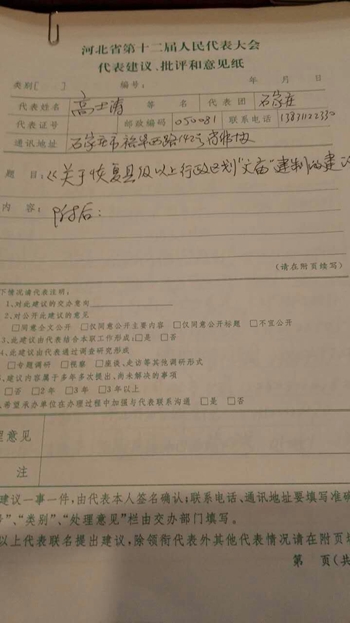 河北省第十二届人民代表大会
代表建议、批评和意见纸
类别[ ] 编号: 年 月 日
代表姓名 高士涛 等 名 代表团 石家庄
代表证号 邮政编码 050081 联系电话
通讯地址 石家庄市裕华西路142号
题 目:《关于恢复县级以上行政区划"文庙"建制的建议
内 容: 附后:
(请在附页续写)
下情况请代表注明:
1、对此建议的交办意向
2、对公开此建议的意见
□同意全文公开 □仅同意公开主要内容 □仅同意公开标题 □不宜公开
3、此建议由代表结合本职工作形成:□是 □否
4、此建议由代表通过调查研究形成
□专题调研 □视察 □座谈、走访等其他调研形式
建议内容属于多年多次提出、尚未解决的事项
□否 □2年 □3年 □3年以上
希望承办单位在办理过程中加强与代表联系沟通 □是 □否
理意见
注
建议一事一件,由代表本人签名确认;联系电话、通讯地址要填写准确
号"、"类别"、"处理意见"栏由交办部门填写。
以上代表联名提出建议,除领衔代表外其他代表情况请在附页填
第 页(共